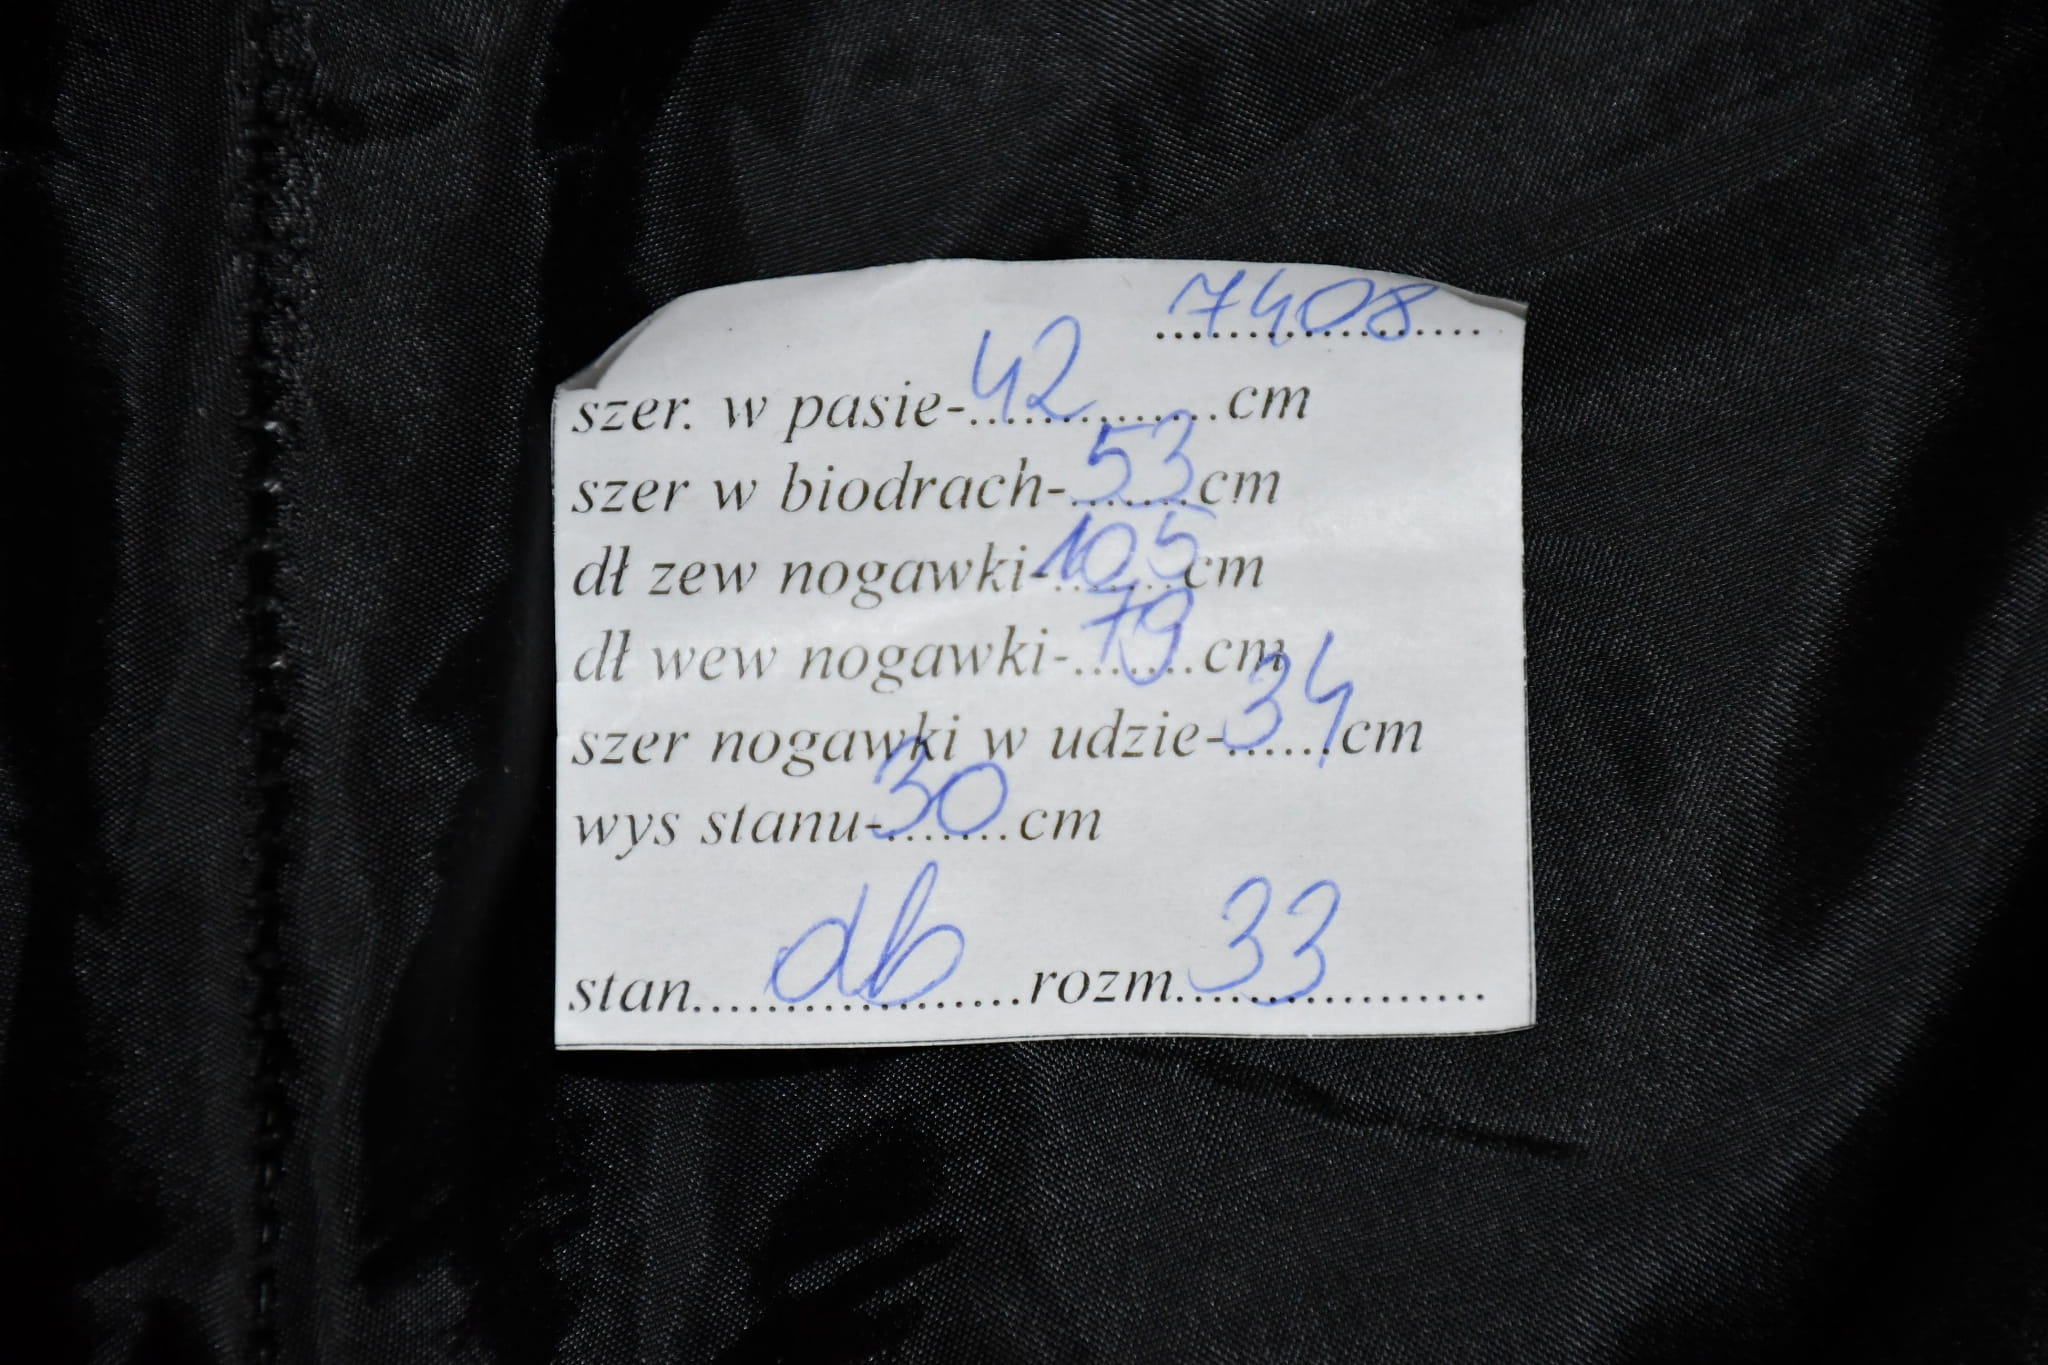 7408
szer. w pasie-42cm
szer w biodrach-53cm
dł zew nogawki-105cm
dł wew nogawki-79cm
szer nogawki w udzie-34cm
wys stanu-30cm
stan....db....rozm.33....